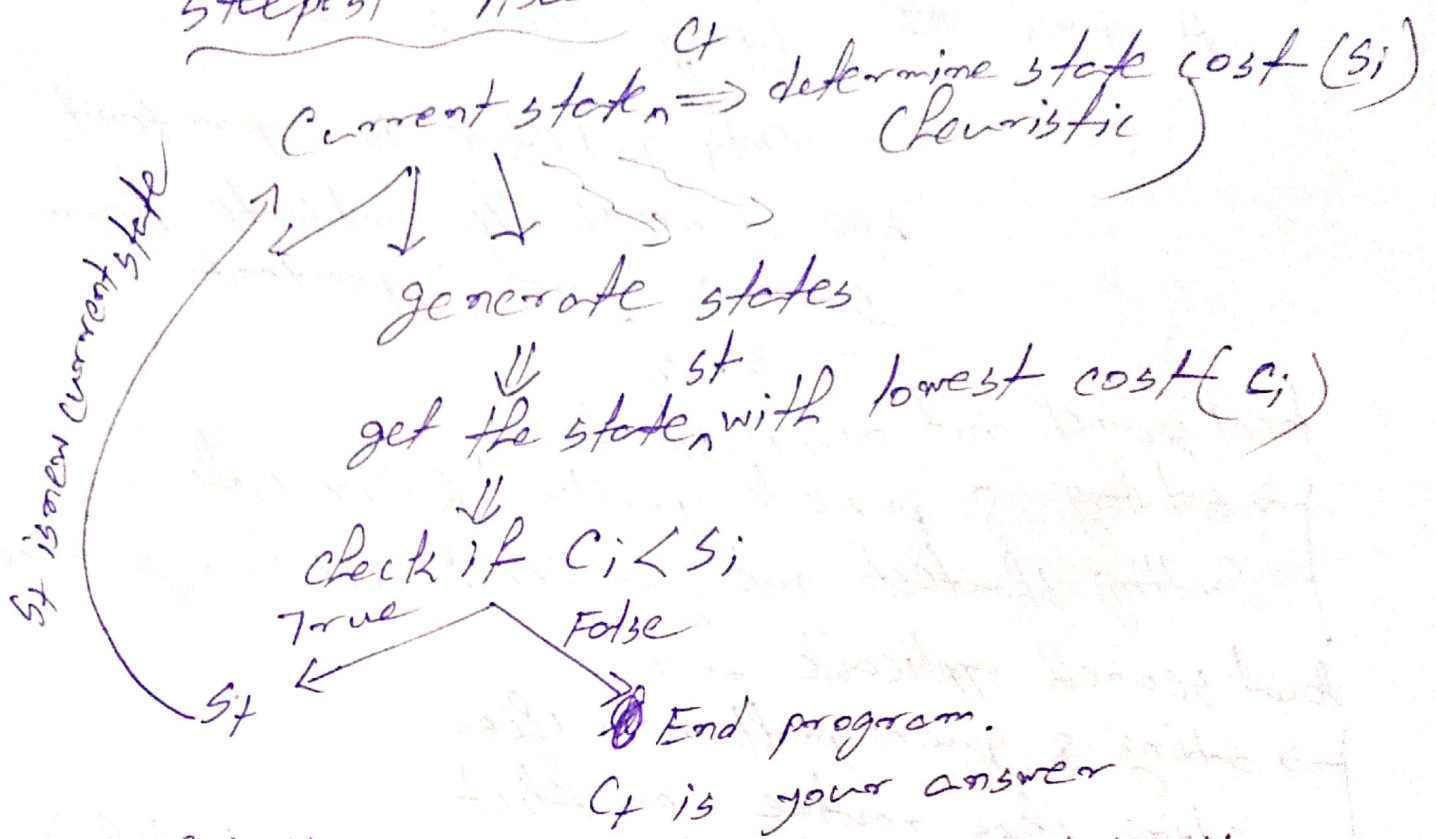 steepest
Ct
Current state ^ => determine state cost (Si)
(heuristic)
generate states
St
get the state ^ with lowest cost (Ci)
check if Ci < Si
True False
St
End program.
Ct is your answer
St is new current state